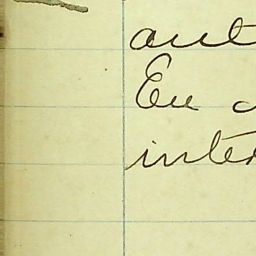 aut
Eu
inter